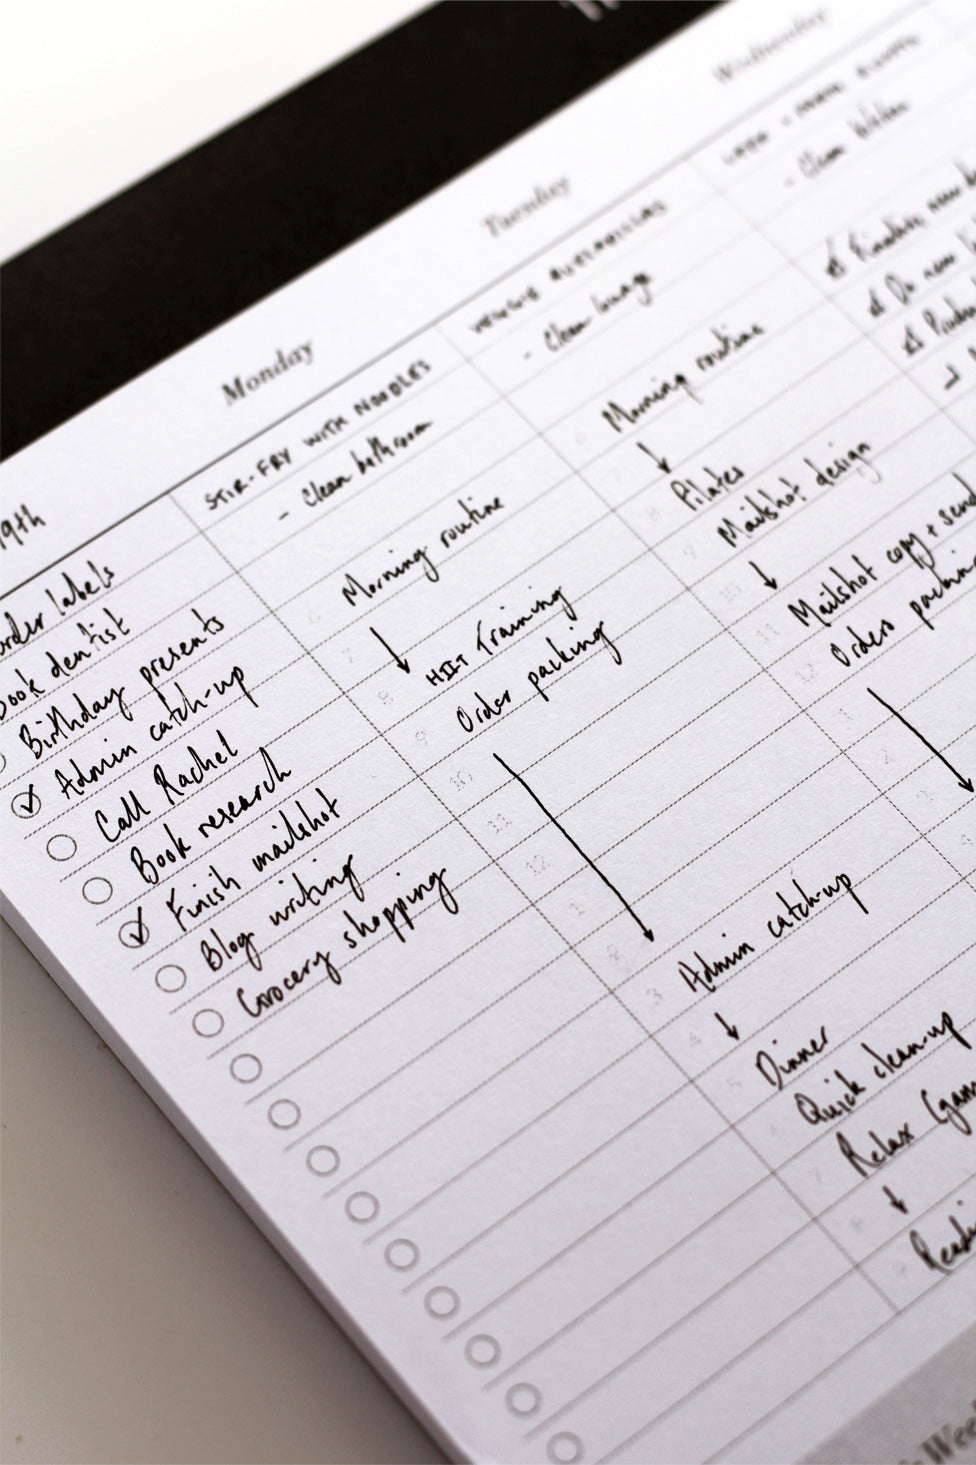 19th
order labels
Book dentist
Birthday presents
Admin catch-up
Call Rachel
Book research
Finish mailshot
Blog writing
Grocery shopping
Monday
STIR-FRY WITH NOODLES
- Clean bathroom
6 Morning routine
7 ↓
8 HIIT Training
9 Order packing
10
11
12
1
2
3 Admin catch-up
4 ↓
5 Dinner
Quick clean-up
7 Relax (gam
8 ↓
9 Readi
Tuesday
VEGGIE QUESADILLAS
- Clean lounge
6 Morning routine
7 ↓
8 Pilates
9 Mailshot design
10 ↓
11 Mailshot copy + send
12 Orders packin
1
2
3
4
Wednesday
- Clean kitchen
Do new
Wee